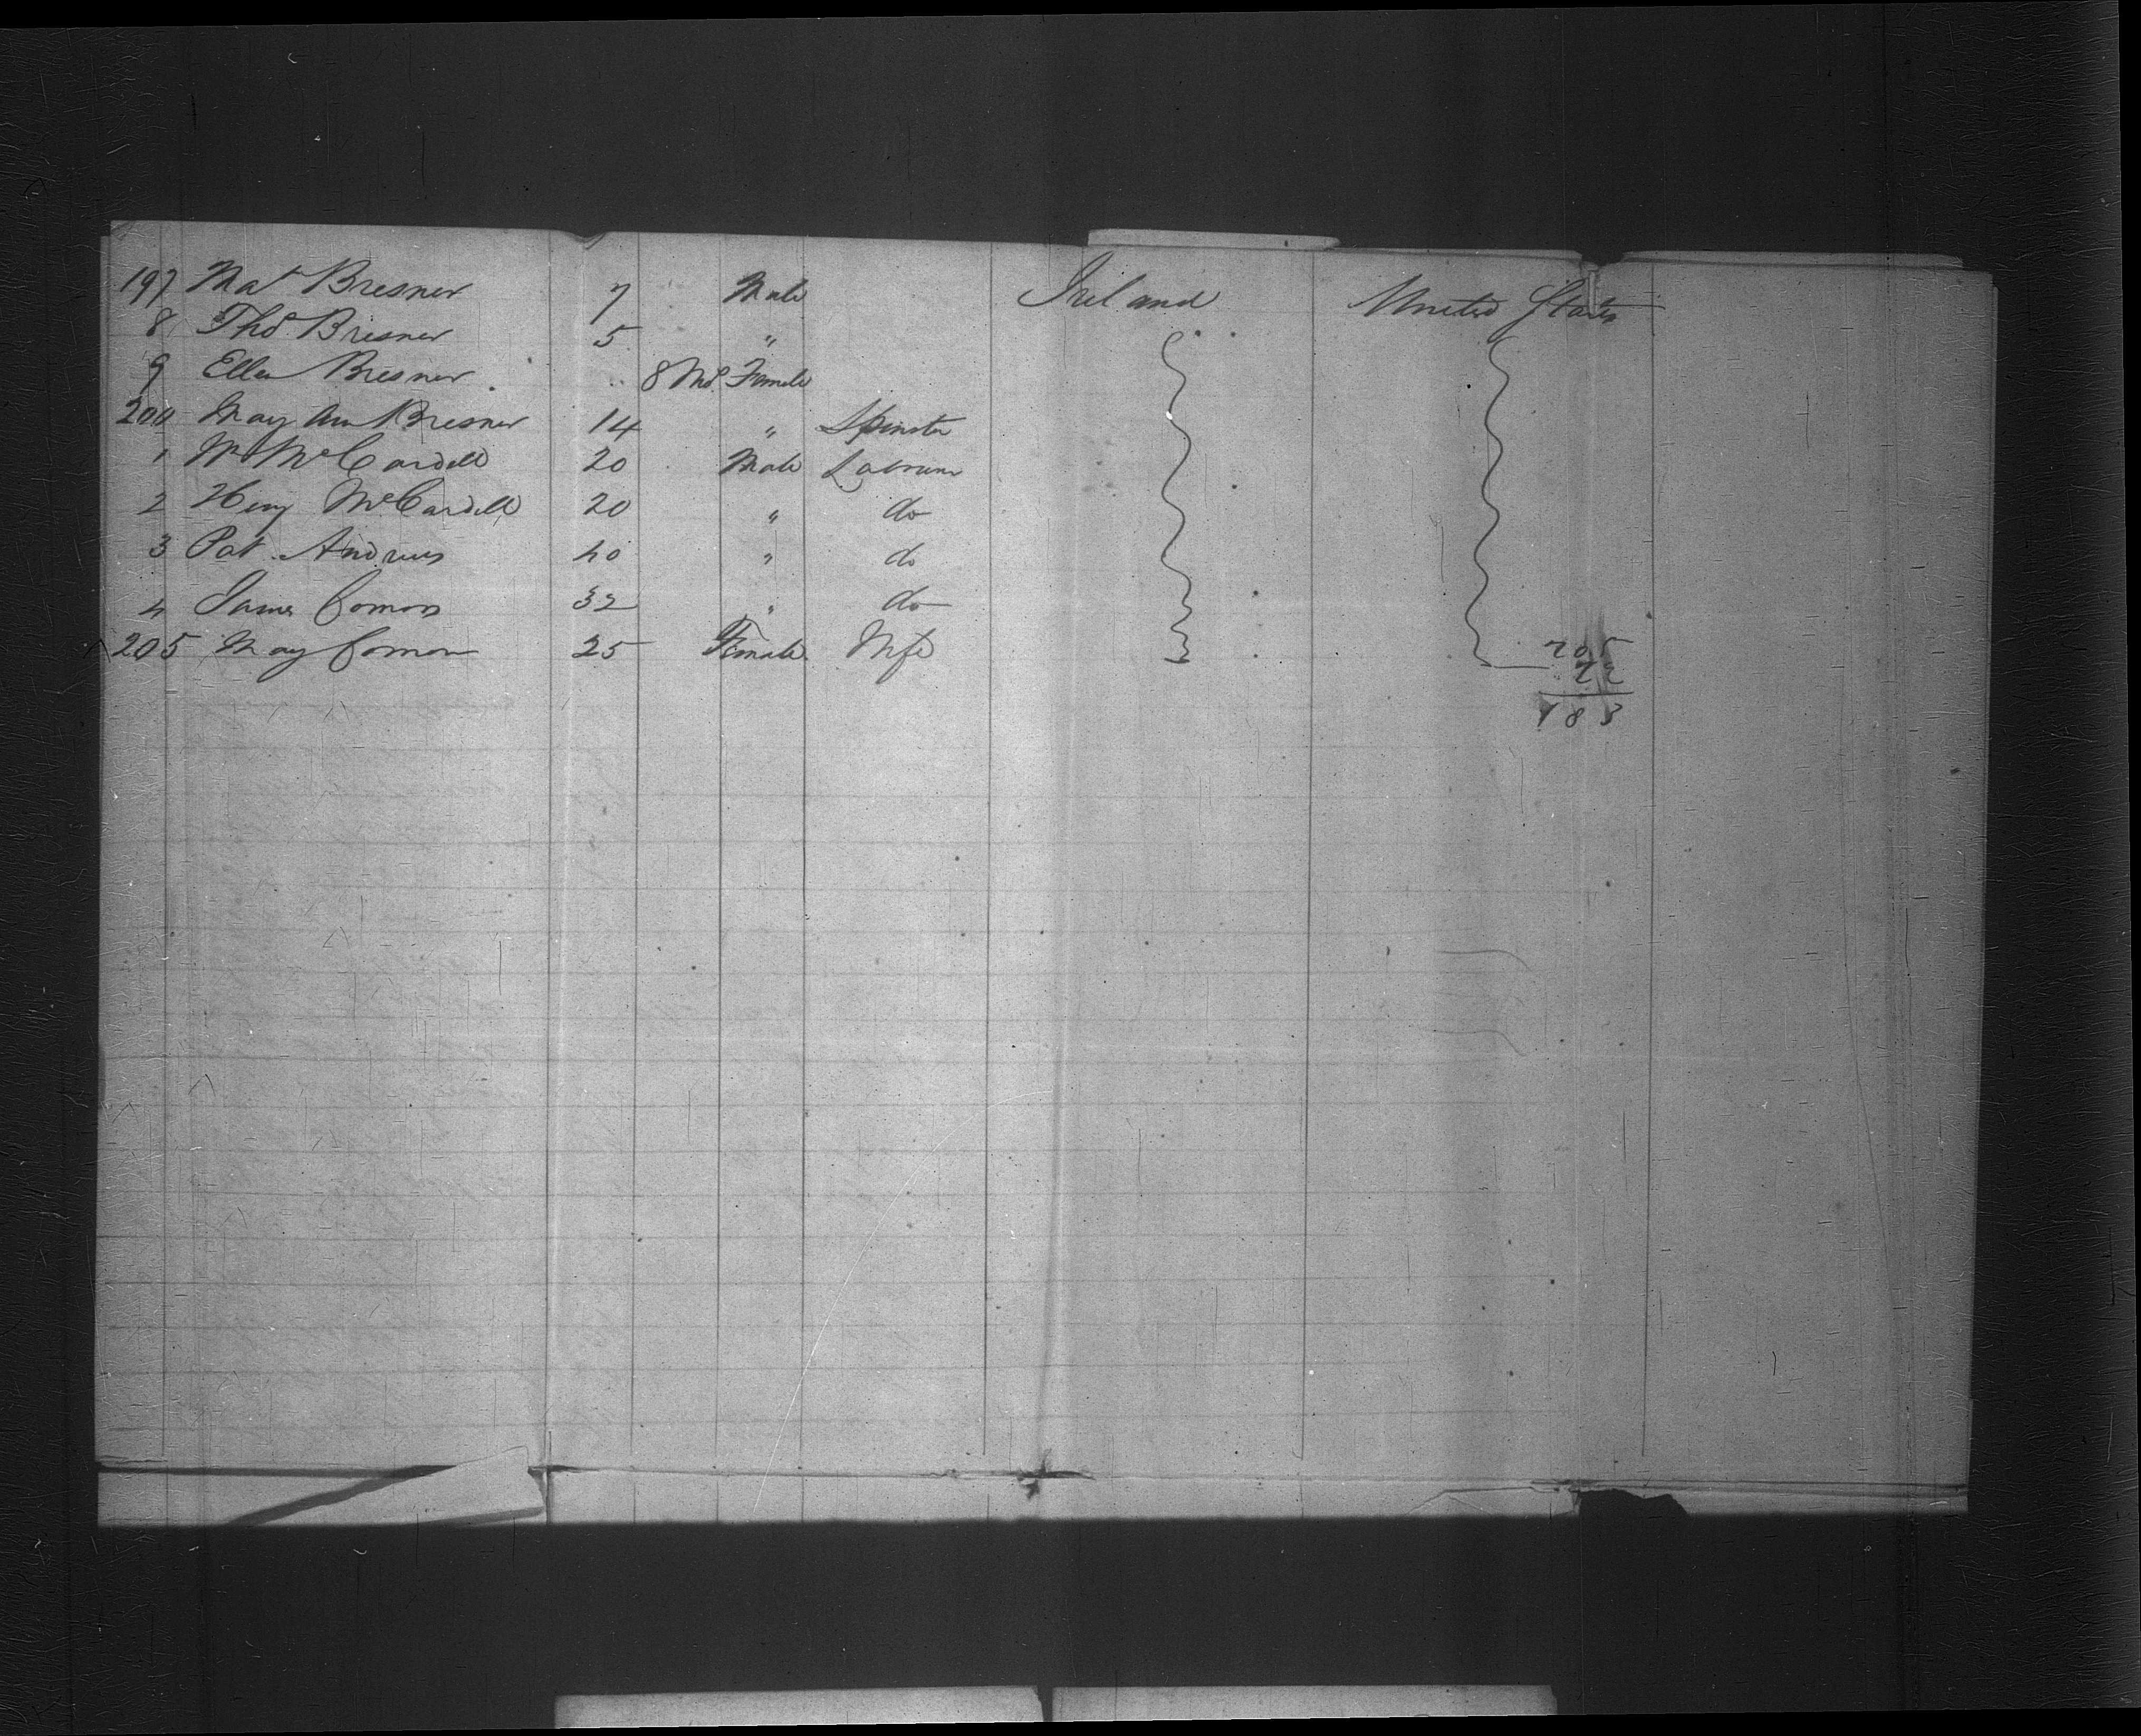 197 Mat Bresner 7 Male Ireland United States
8 Thos Bresner 5 "
9 Ellen Bresner .. 8 Mos Female
200 May Ann Bresner 14 " Spinster
1 Wm McCardell 20 Male Labourer
2 Heny McCardell 20 " do
3 Pat Andrews 40 " do
4 James Comons 32 " do
205 May Comon 25 Female Wife
205
22
183